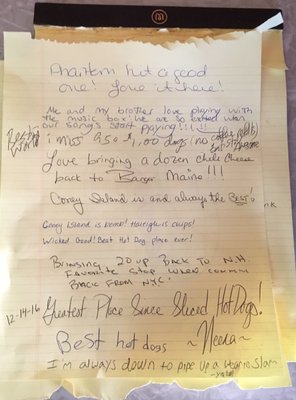 good
one! Love it here!
Me and my brother love playing with
the music box! We are so excited when
our songs start playing!!!!!
i miss .95¢ $1.00 dogs! no
Love bringing a dozen Chili Cheese
back to Bangor Maine!!!
Coney Island is and always the BEST!
Coney Island is
Wicked Good! Best Hot Dog place ever!
Bringing 20 up Back to N.H
Favorite stop when coming
Back from NYC!
12-14-16 Greatest Place Since Sliced Hot Dogs!
Best hot dogs ~Neena~
I'm always down to pipe up a weenie slam